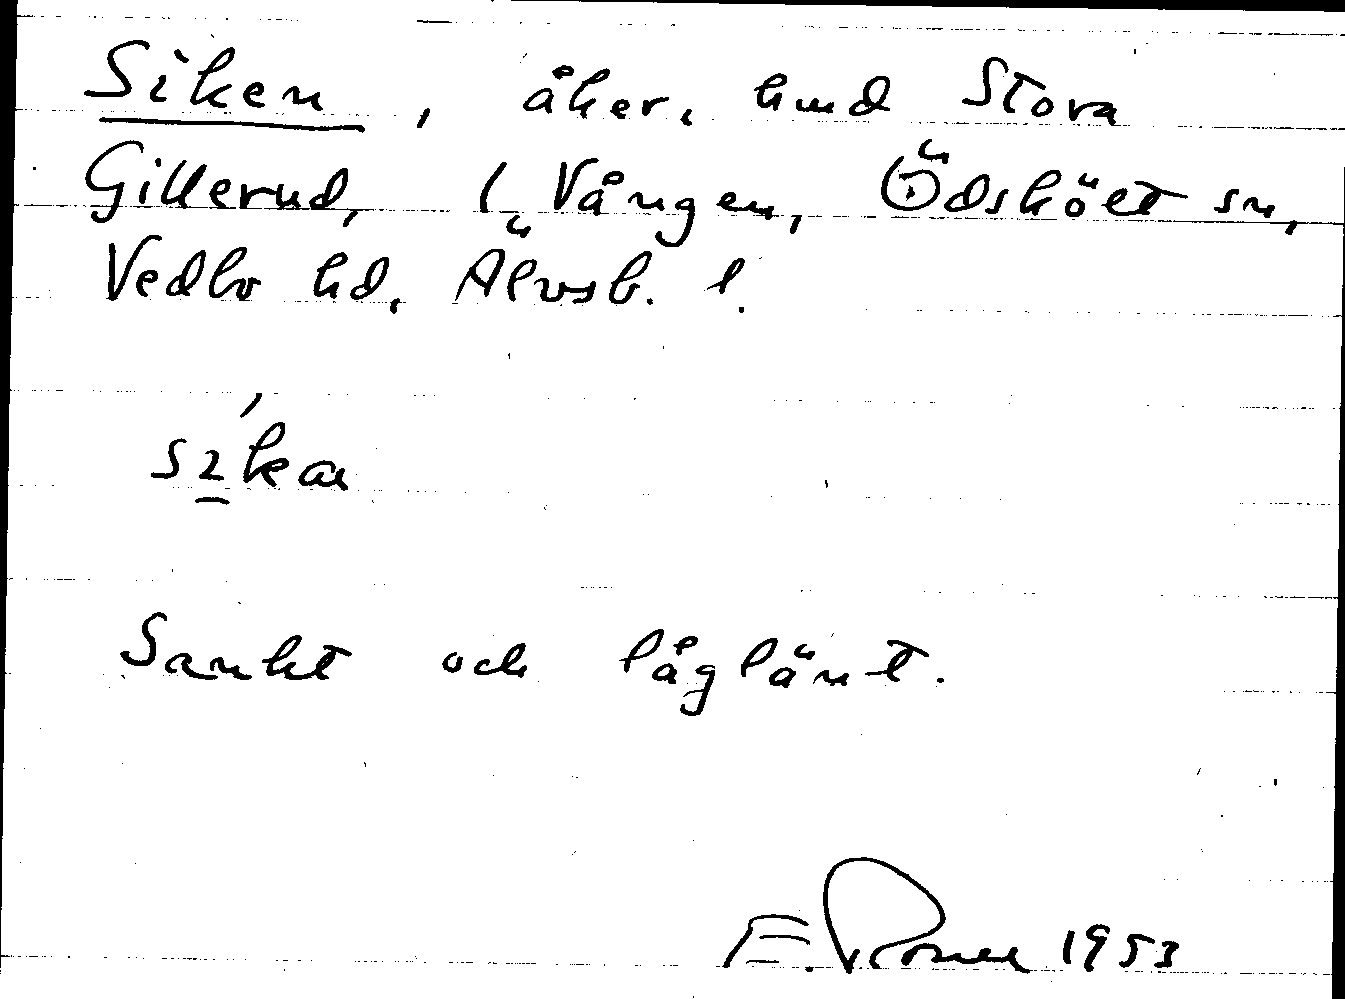 Siken, åker, hmd Stora
Gillerud, l. Vången, Ödskölt sn,
Vedbo hd, Älvsb. l.
Sankt och låglänt.
E. 1953